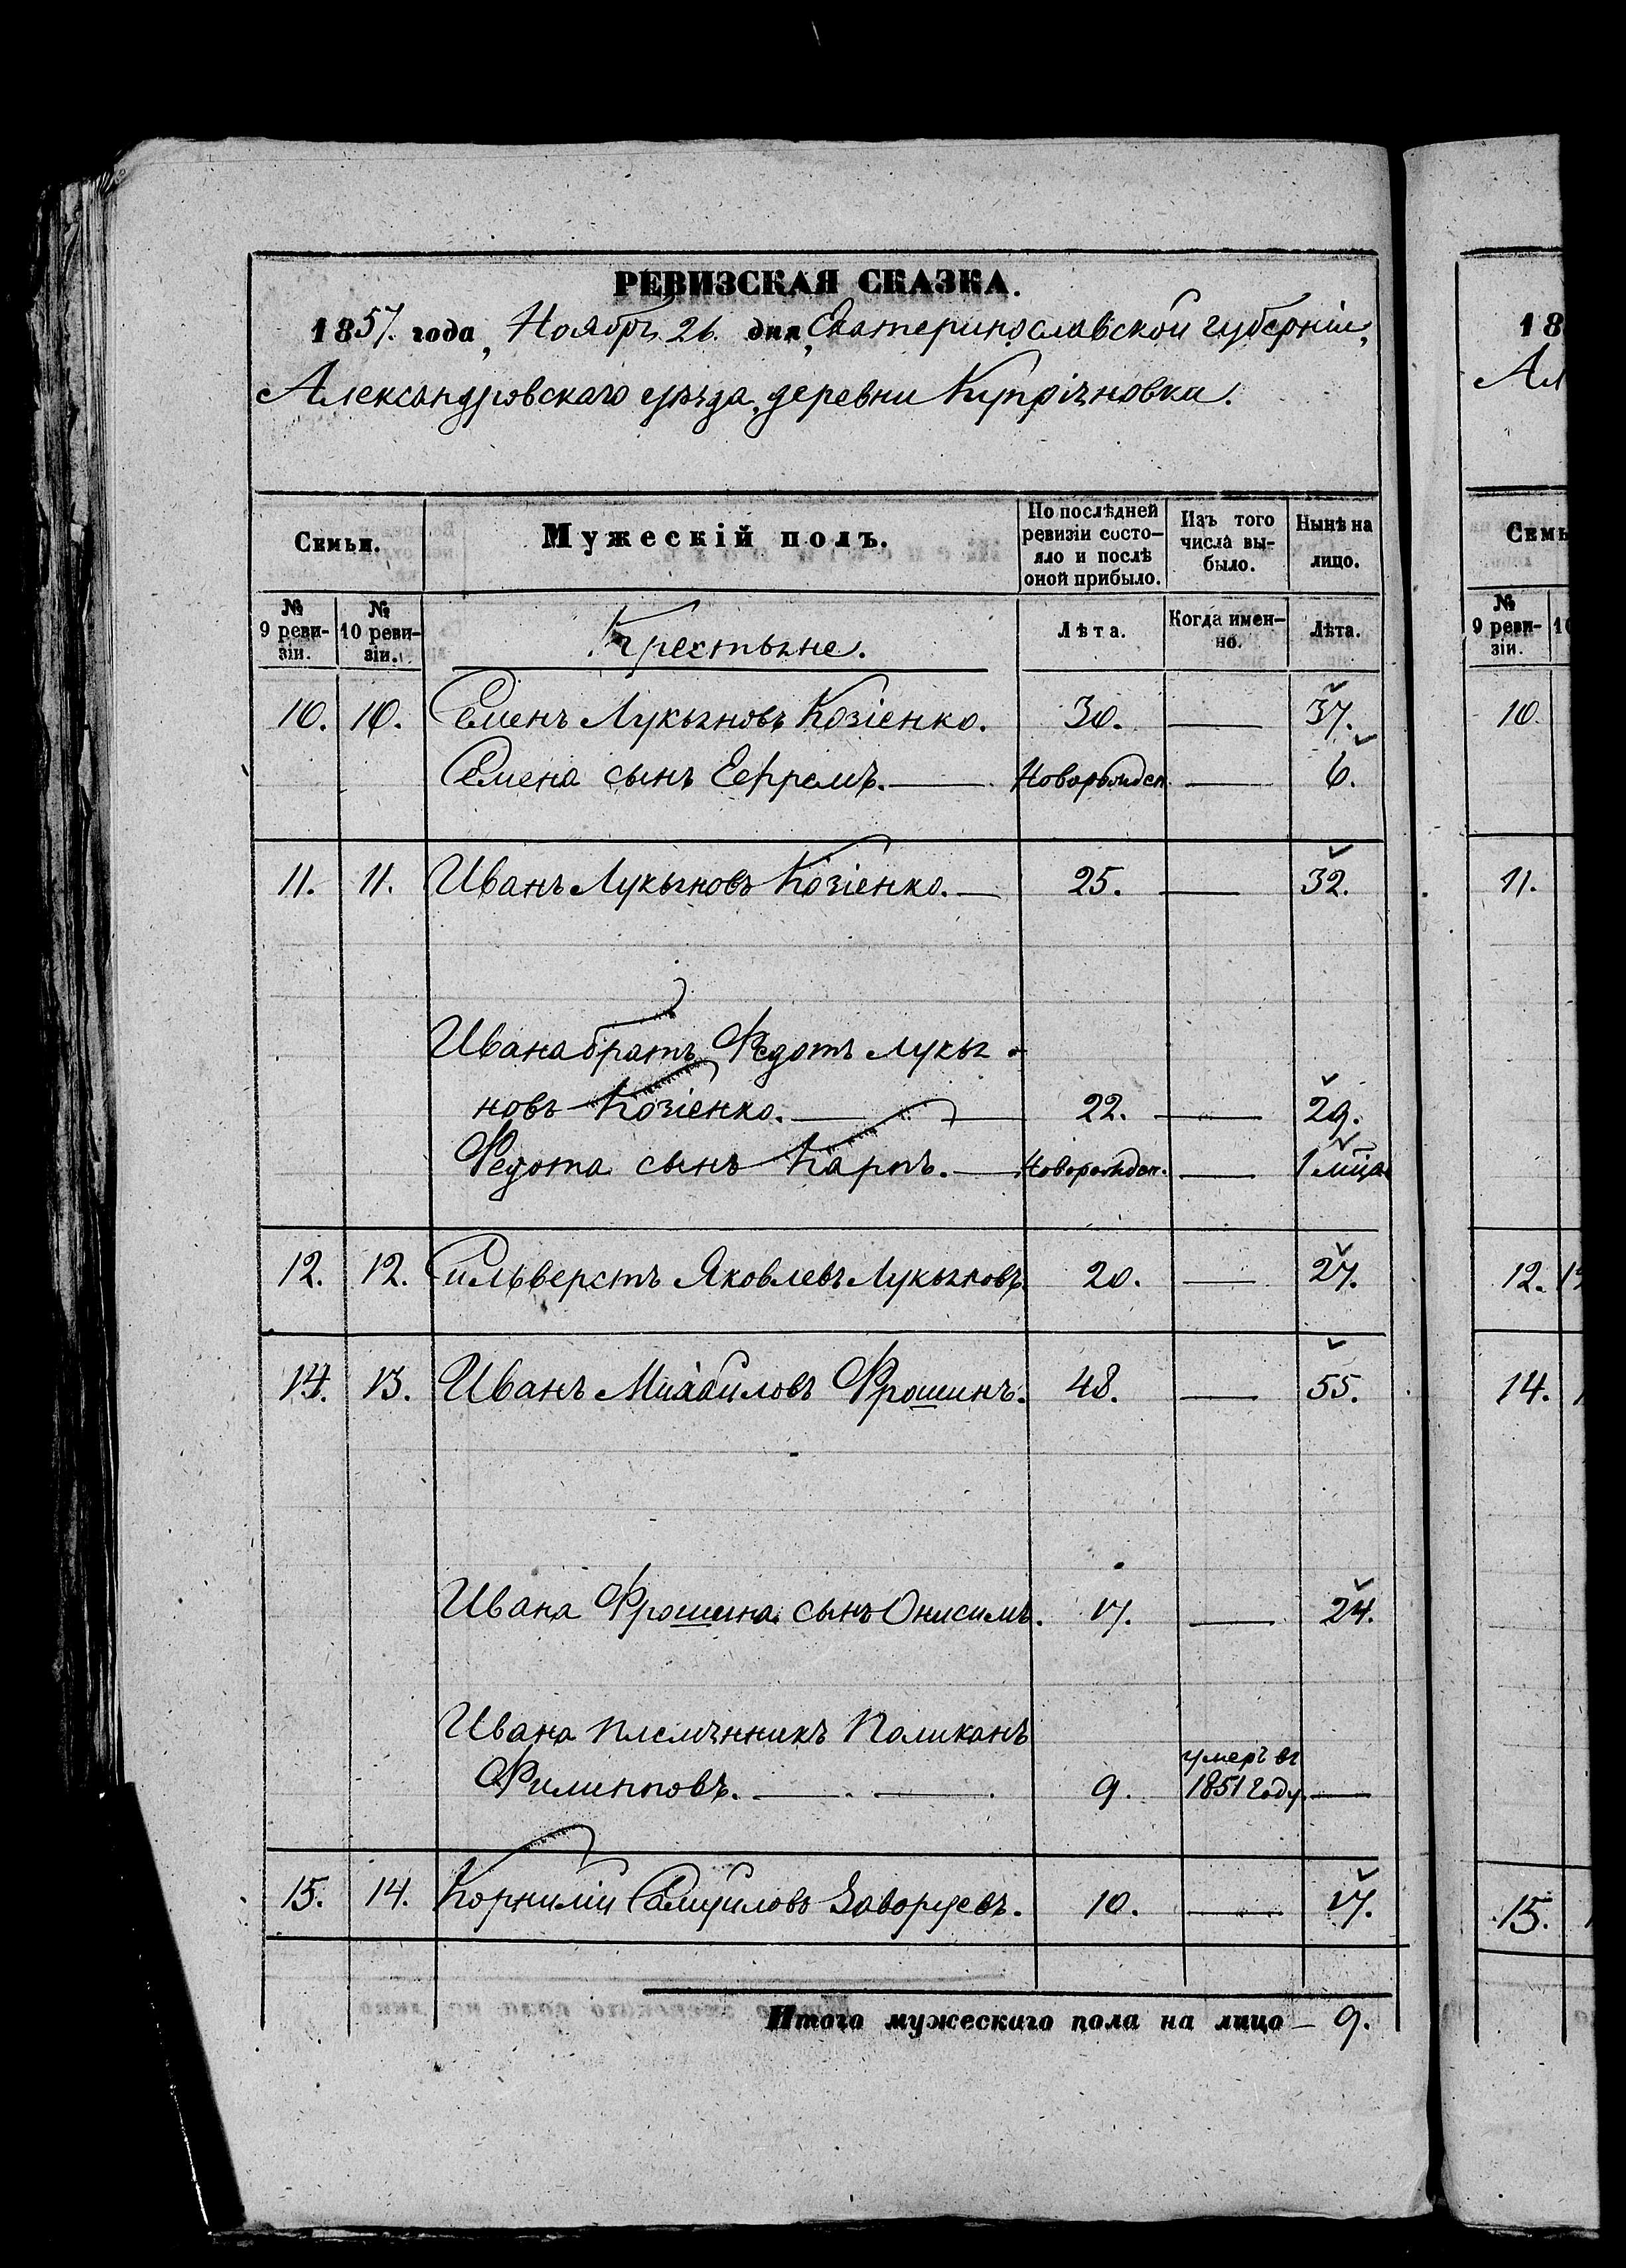 РЕВИЗСКАЯ СКАЗКА.
1857. года, Ноября 26. дня, Екатеринославской губерніи,
Александровскаго уѣзда, деревни Купріяновки.
Семьи.
Мужескій полъ.
По послѣдней ревизіи состо-
яло и послѣ оной прибыло.
Изъ того числа вы-
было.
Нынѣ на лицо.
№ 9 реви-
зіи.
№ 10 реви-
зіи.
Крестьяне.
Лѣта.
Когда имен-
но.
Лѣта.
10. 10. Семенъ Лукьяновъ Козіенко. 30. — 37.
Семена сынъ Ефремъ. — Новорожден. — 6.
11. 11. Иванъ Лукьяновъ Козіенко. — 25. — 32.
Ивана братъ Федотъ Лукья-
новъ Козіенко. — 22. — 29.
Федота сынъ Карпъ. — Новорожден. — 1 мѣся.
12. 12. Сильверстъ Яковлевъ Лукьяновъ. 20. — 27.
14. 13. Иванъ Михайловъ Фрошинъ. 48. — 55.
Ивана Фрошина сынъ Онисимъ. 17. — 24.
Ивана племянникъ Поликанъ
Филипповъ. — — 9. умеръ въ 1851 году. —
15. 14. Корнилій Самуиловъ Заворуевъ. 10. — 17.
Итого мужескаго пола на лицо — 9.
18
Ал
Семь
№ 9 реви-
зіи.
10
10
11.
12.
14.
15.